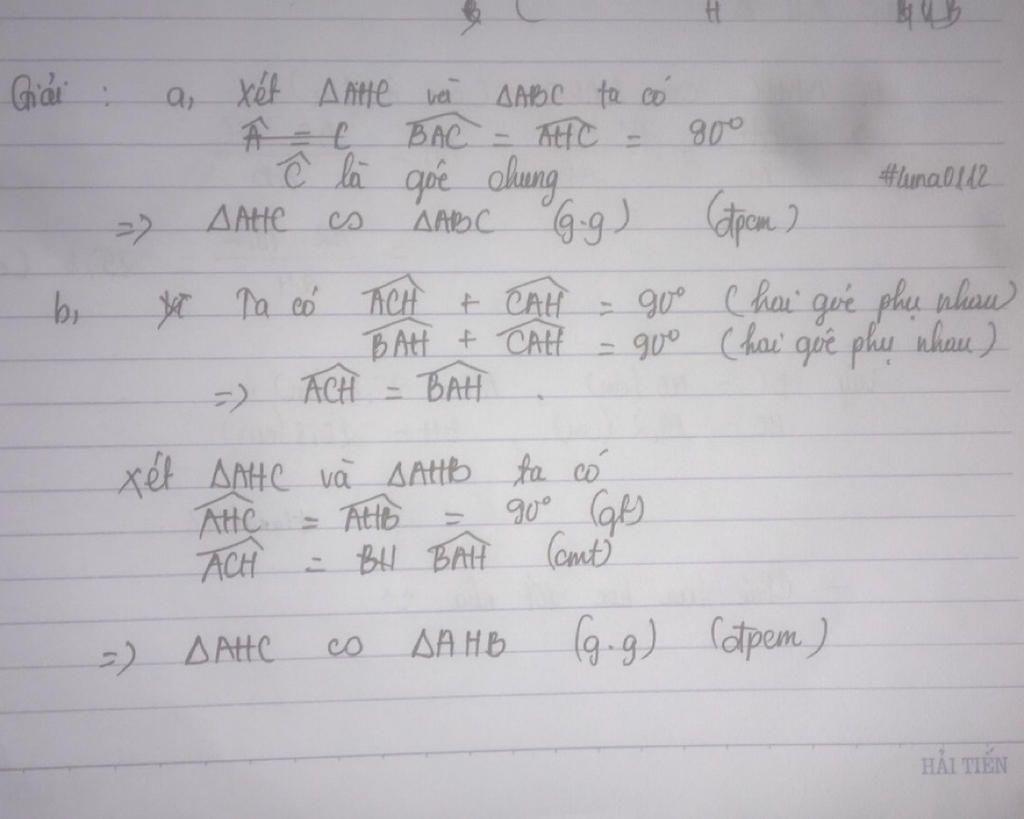 Giải : a, xét ΔAHC và ΔABC ta có
Â = C BAC = AHC = 90°
Ĉ là góc chung
#luna0112
=> ΔAHC ∽ ΔABC (g.g) (đpcm)
b, Ta có ACH + CAH = 90° (hai góc phụ nhau)
BAH + CAH = 90° (hai góc phụ nhau)
=> ACH = BAH .
xét ΔAHC và ΔAHB ta có
AHC = AHB = 90° (gt)
ACH = BH BAH (cmt)
=> ΔAHC ∽ ΔAHB (g.g) (đpcm)
HẢI TIẾN